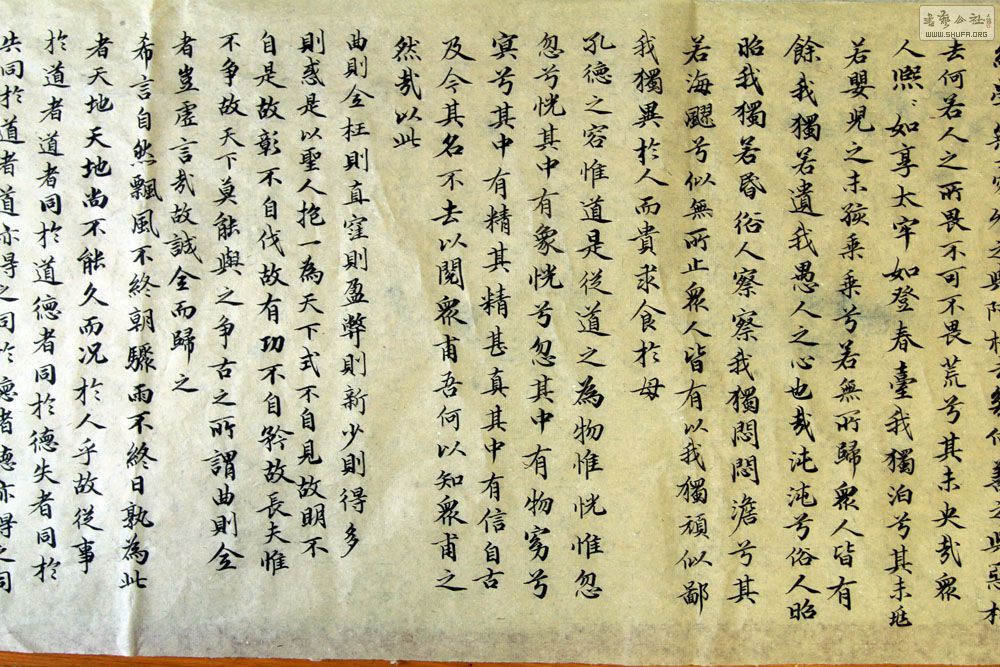 之與阿相去幾何善之與惡相
去何若人之所畏不可不畏荒兮其未央哉衆
人熙〻如享太牢如登春臺我獨泊兮其未兆
若嬰兒之未孩乘乘兮若無所歸衆人皆有
餘我獨若遺我愚人之心也哉沌沌兮俗人昭
昭我獨若昏俗人察察我獨悶悶澹兮其
若海飂兮似無所止衆人皆有以我獨頑似鄙
我獨異於人而貴求食於母
孔德之容惟道是從道之為物惟恍惟忽
忽兮恍其中有象恍兮忽其中有物窈兮
冥兮其中有精其精甚真其中有信自古
及今其名不去以閱衆甫吾何以知衆甫之
然哉以此
曲則全枉則直窪則盈弊則新少則得多
則惑是以聖人抱一為天下式不自見故明不
自是故彰不自伐故有功不自矜故長夫惟
不争故天下莫能與之争古之所謂曲則全
者豈虛言哉故誠全而歸之
希言自然飄風不終朝驟雨不終日孰為此
者天地天地尚不能久而况於人乎故從事
於道者道者同於道德者同於德失者同於
失同於道者道亦得之同於德者德亦得之同
書藝公社
WWW.SHUFA.ORG